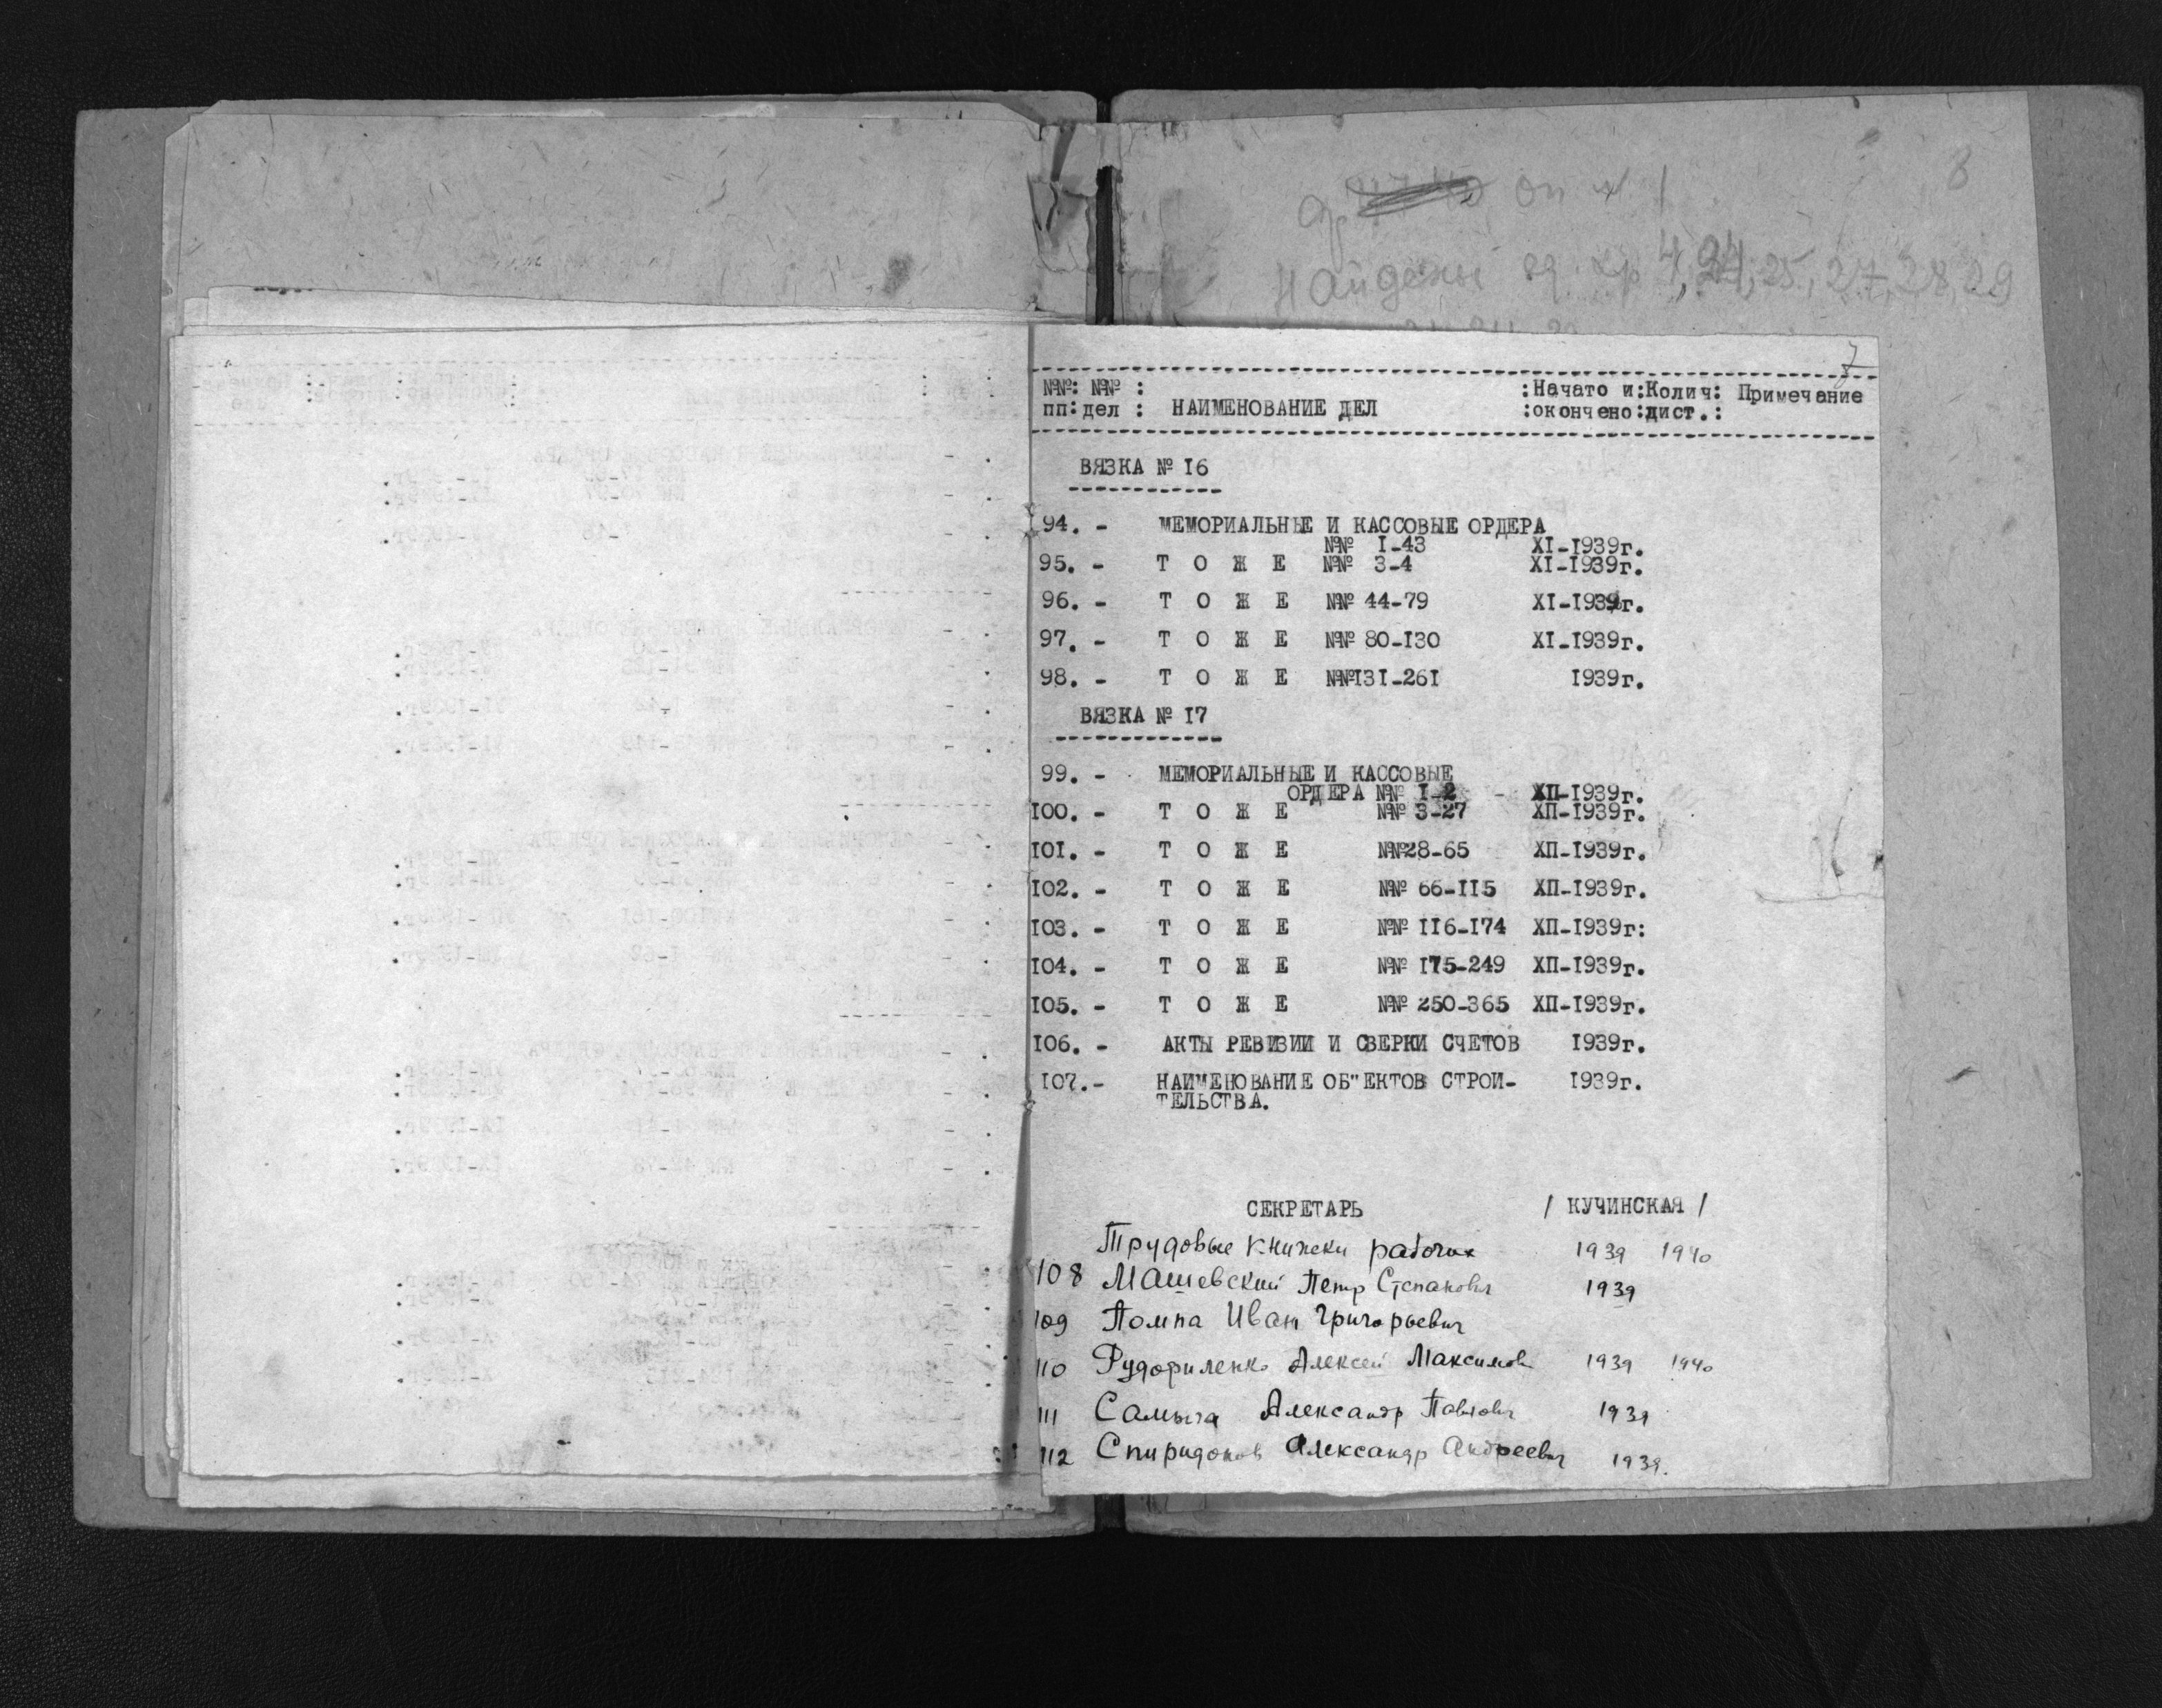 8
оп № 1
Найдены ед. хр 4, 24, 25, 27, 28, 29
7
№№: №№ : :Начато и:Колич: Примечание
пп: дел : НАИМЕНОВАНИЕ ДЕЛ :окончено:дист.:
ВЯЗКА № I6
94. - МЕМОРИАЛЬНЫЕ И КАССОВЫЕ ОРДЕРА
№№ I-43 XI-I939г.
95. - Т О Ж Е №№ 3-4 XI-I939г.
96. - Т О Ж Е №№ 44-79 XI-I939г.
97. - Т О Ж Е №№ 80-I30 XI-I939г.
98. - Т О Ж Е №№I3I-26I I939г.
ВЯЗКА № I7
99. - МЕМОРИАЛЬНЫЕ И КАССОВЫЕ
ОРДЕРА №№ I-2 - ХП-I939г.
I00. - Т О Ж Е №№ 3-27 ХП-I939г.
I0I. - Т О Ж Е №№28-65 ХП-I939г.
I02. - Т О Ж Е №№ 66-II5 ХП-I939г.
I03. - Т О Ж Е №№ II6-I74 ХП-I939г:
I04. - Т О Ж Е №№ I75-249 ХП-I939г.
I05. - Т О Ж Е №№ 250-365 ХП-I939г.
I06. - АКТЫ РЕВИЗИИ И СВЕРКИ СЧЕТОВ I939г.
I07.- НАИМЕНОВАНИЕ ОБ"ЕКТОВ СТРОИ- I939г.
ТЕЛЬСТВА.
СЕКРЕТАРЬ / КУЧИНСКАЯ /
Трудовые книжки рабочих 1939 1940
108 Машевский Петр Степанович 1939
109 Помпа Иван Григорьевич
110 Алексей Максимов 1939 1940
111 Самыга Александр Павлович 1939
112 Спиридонов Александр Андреевич 1939.